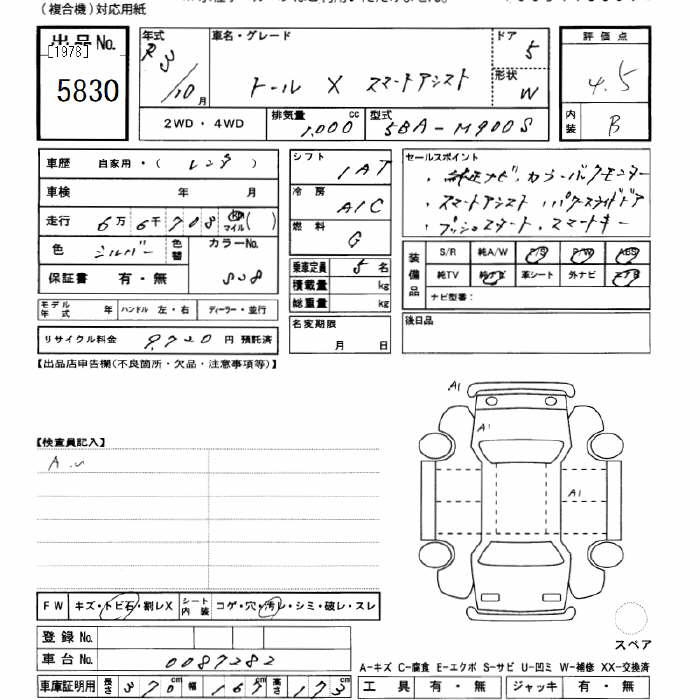 (複合機)対応用紙
出品No.
[1978]
5830
年式 R3/10月
車名・グレード
トール X スマートアシスト
ドア 5
形状 W
評価点
4.5
内装 B
2WD・4WD
排気量 1,000 cc
型式 5BA-M900S
車歴 自家用・(レンタ)
車検 年 月
走行 6万6千708 km マイル ( )
色 シルバー 色替 カラーNo. S28
保証書 有・無
モデル年式 年 ハンドル 左・右 ディーラー・並行
リサイクル料金 9,720 円 預託済
シフト IAT
冷房 A/C
燃料 G
乗車定員 5 名
積載量 kg
総重量 kg
名変期限
月 日
セールスポイント
・純正ナビ・カラーバックモニター
・スマートアシスト・パワースライドドア
・プッシュスタート・スマートキー
装備品
S/R 純A/W P/S P/W ABS
純TV 純ナビ 革シート 外ナビ エアB
ナビ型番:
後日品
【出品店申告欄(不良箇所・欠品・注意事項等)】
【検査員記入】
A.U
A1
A1
A1
FW キズ・トビ石・割レX シート内装 コゲ・穴・汚レ・シミ・破レ・スレ
登録No.
車台No. 0087282
車庫証明用 長さ 370cm 幅 167cm 高さ 173cm
スペア
A-キズ C-腐食 E-エクボ S-サビ U-凹ミ W-補修 XX-交換済
工具 有・無 ジャッキ 有・無